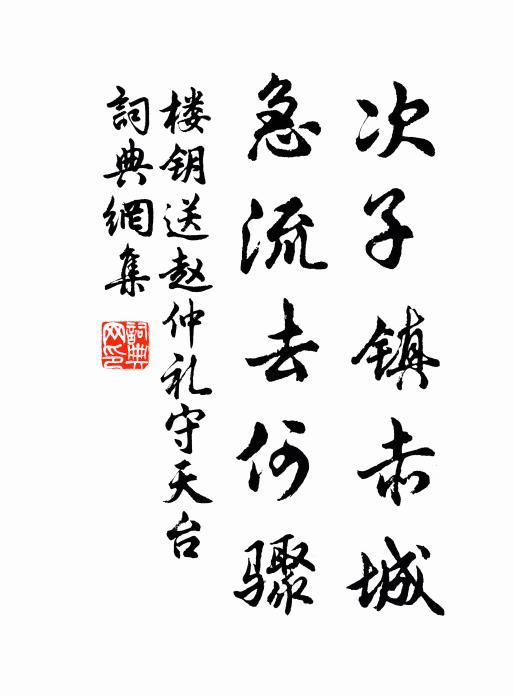 次子镇赤城
急流去何骤
楼钥送赵仲礼守天台
詞典網集
詞典
网印